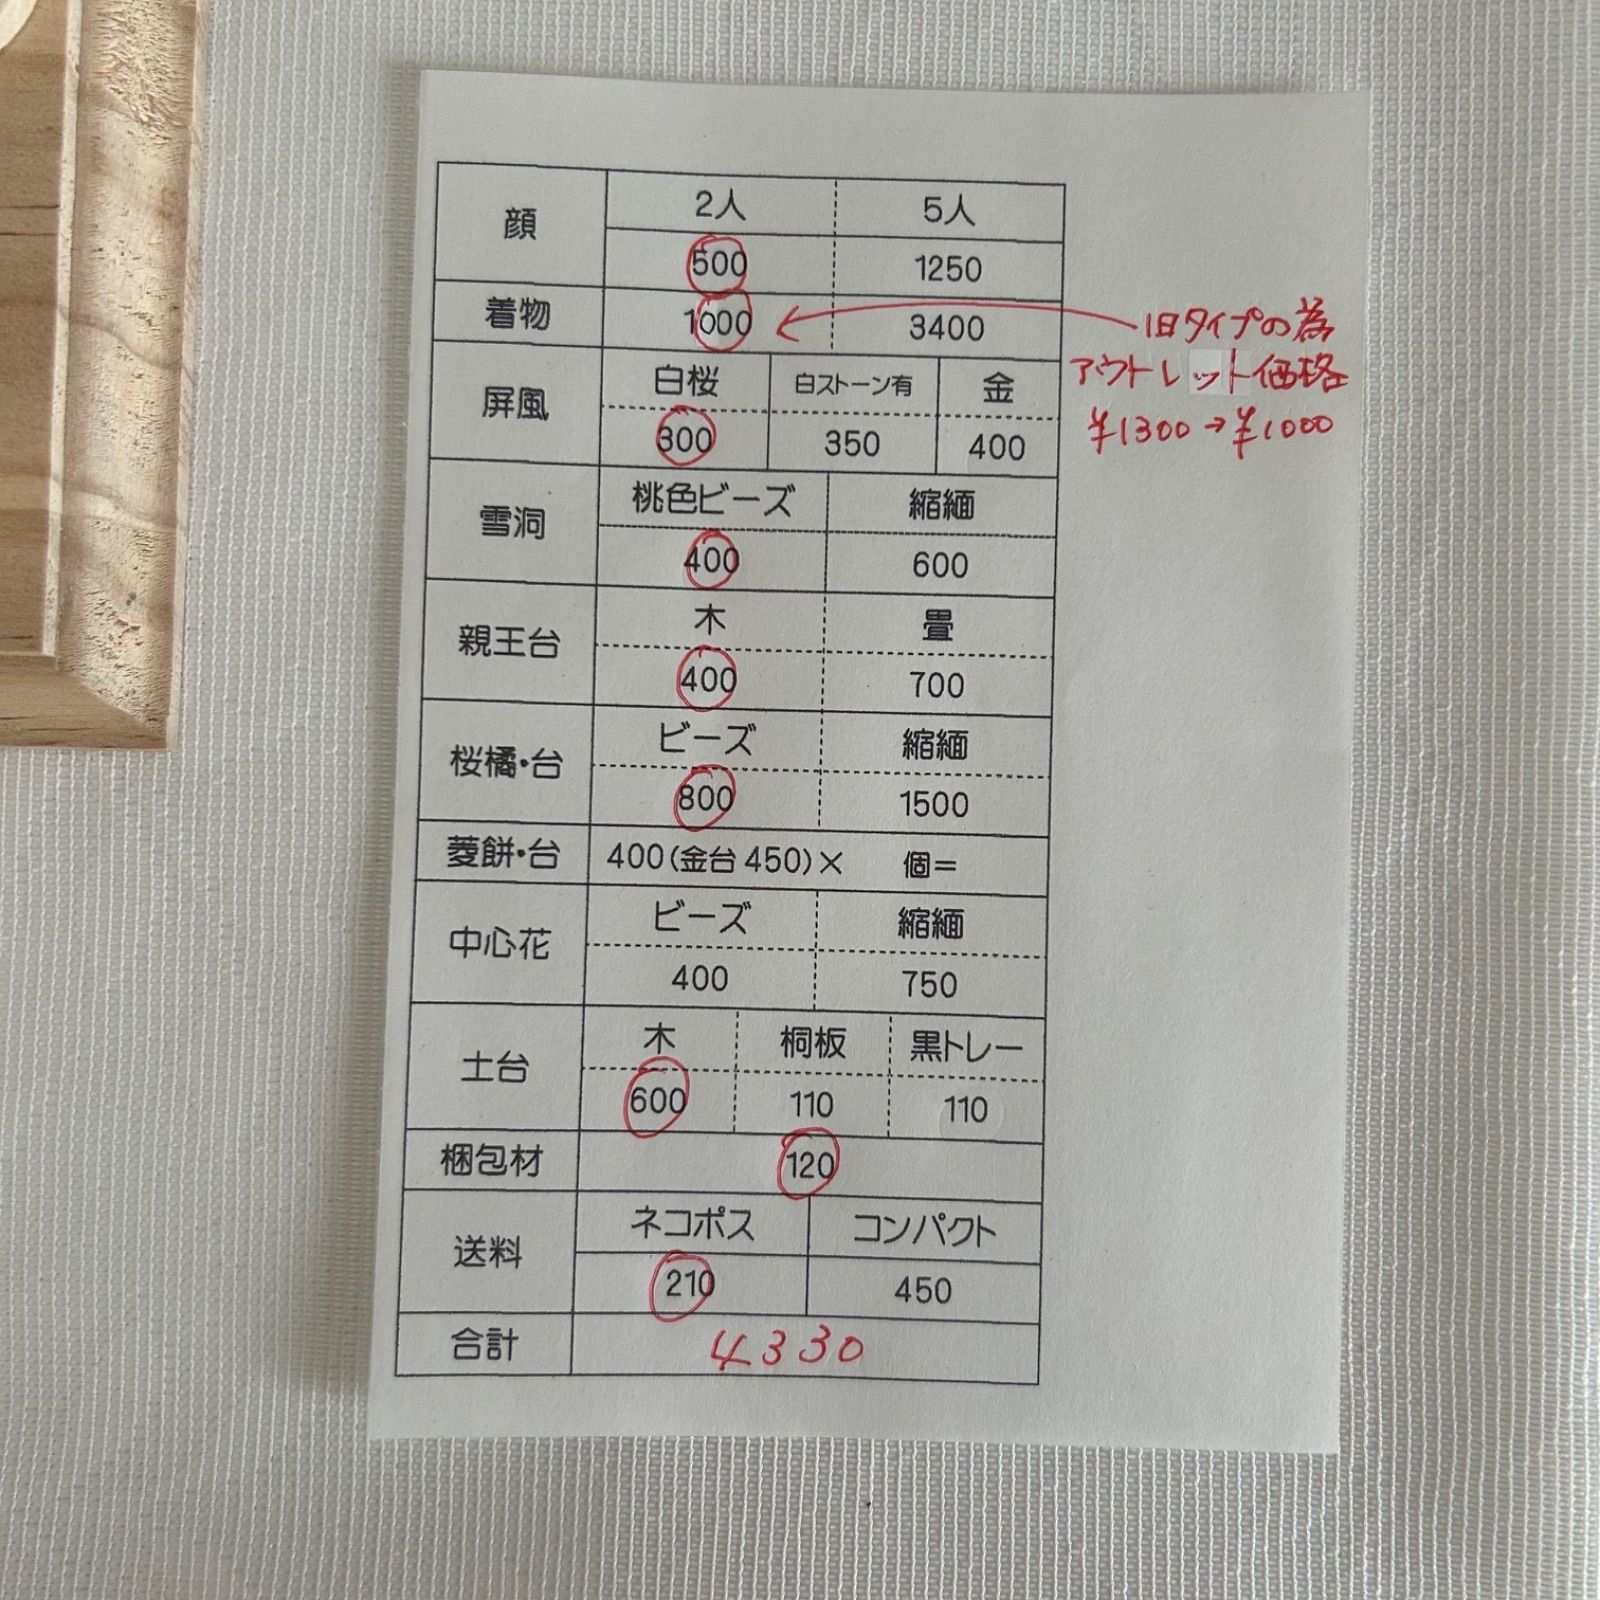 顔 2人 5人
500 1250
着物 1000 3400
旧タイプの為
アウトレット価格
¥1300→¥1000
屏風 白桜 白ストーン有 金
300 350 400
雪洞 桃色ビーズ 縮緬
400 600
親王台 木 畳
400 700
桜橘・台 ビーズ 縮緬
800 1500
菱餅・台 400(金台450)× 個=
中心花 ビーズ 縮緬
400 750
土台 木 桐板 黒トレー
600 110 110
梱包材 120
送料 ネコポス コンパクト
210 450
合計 4330